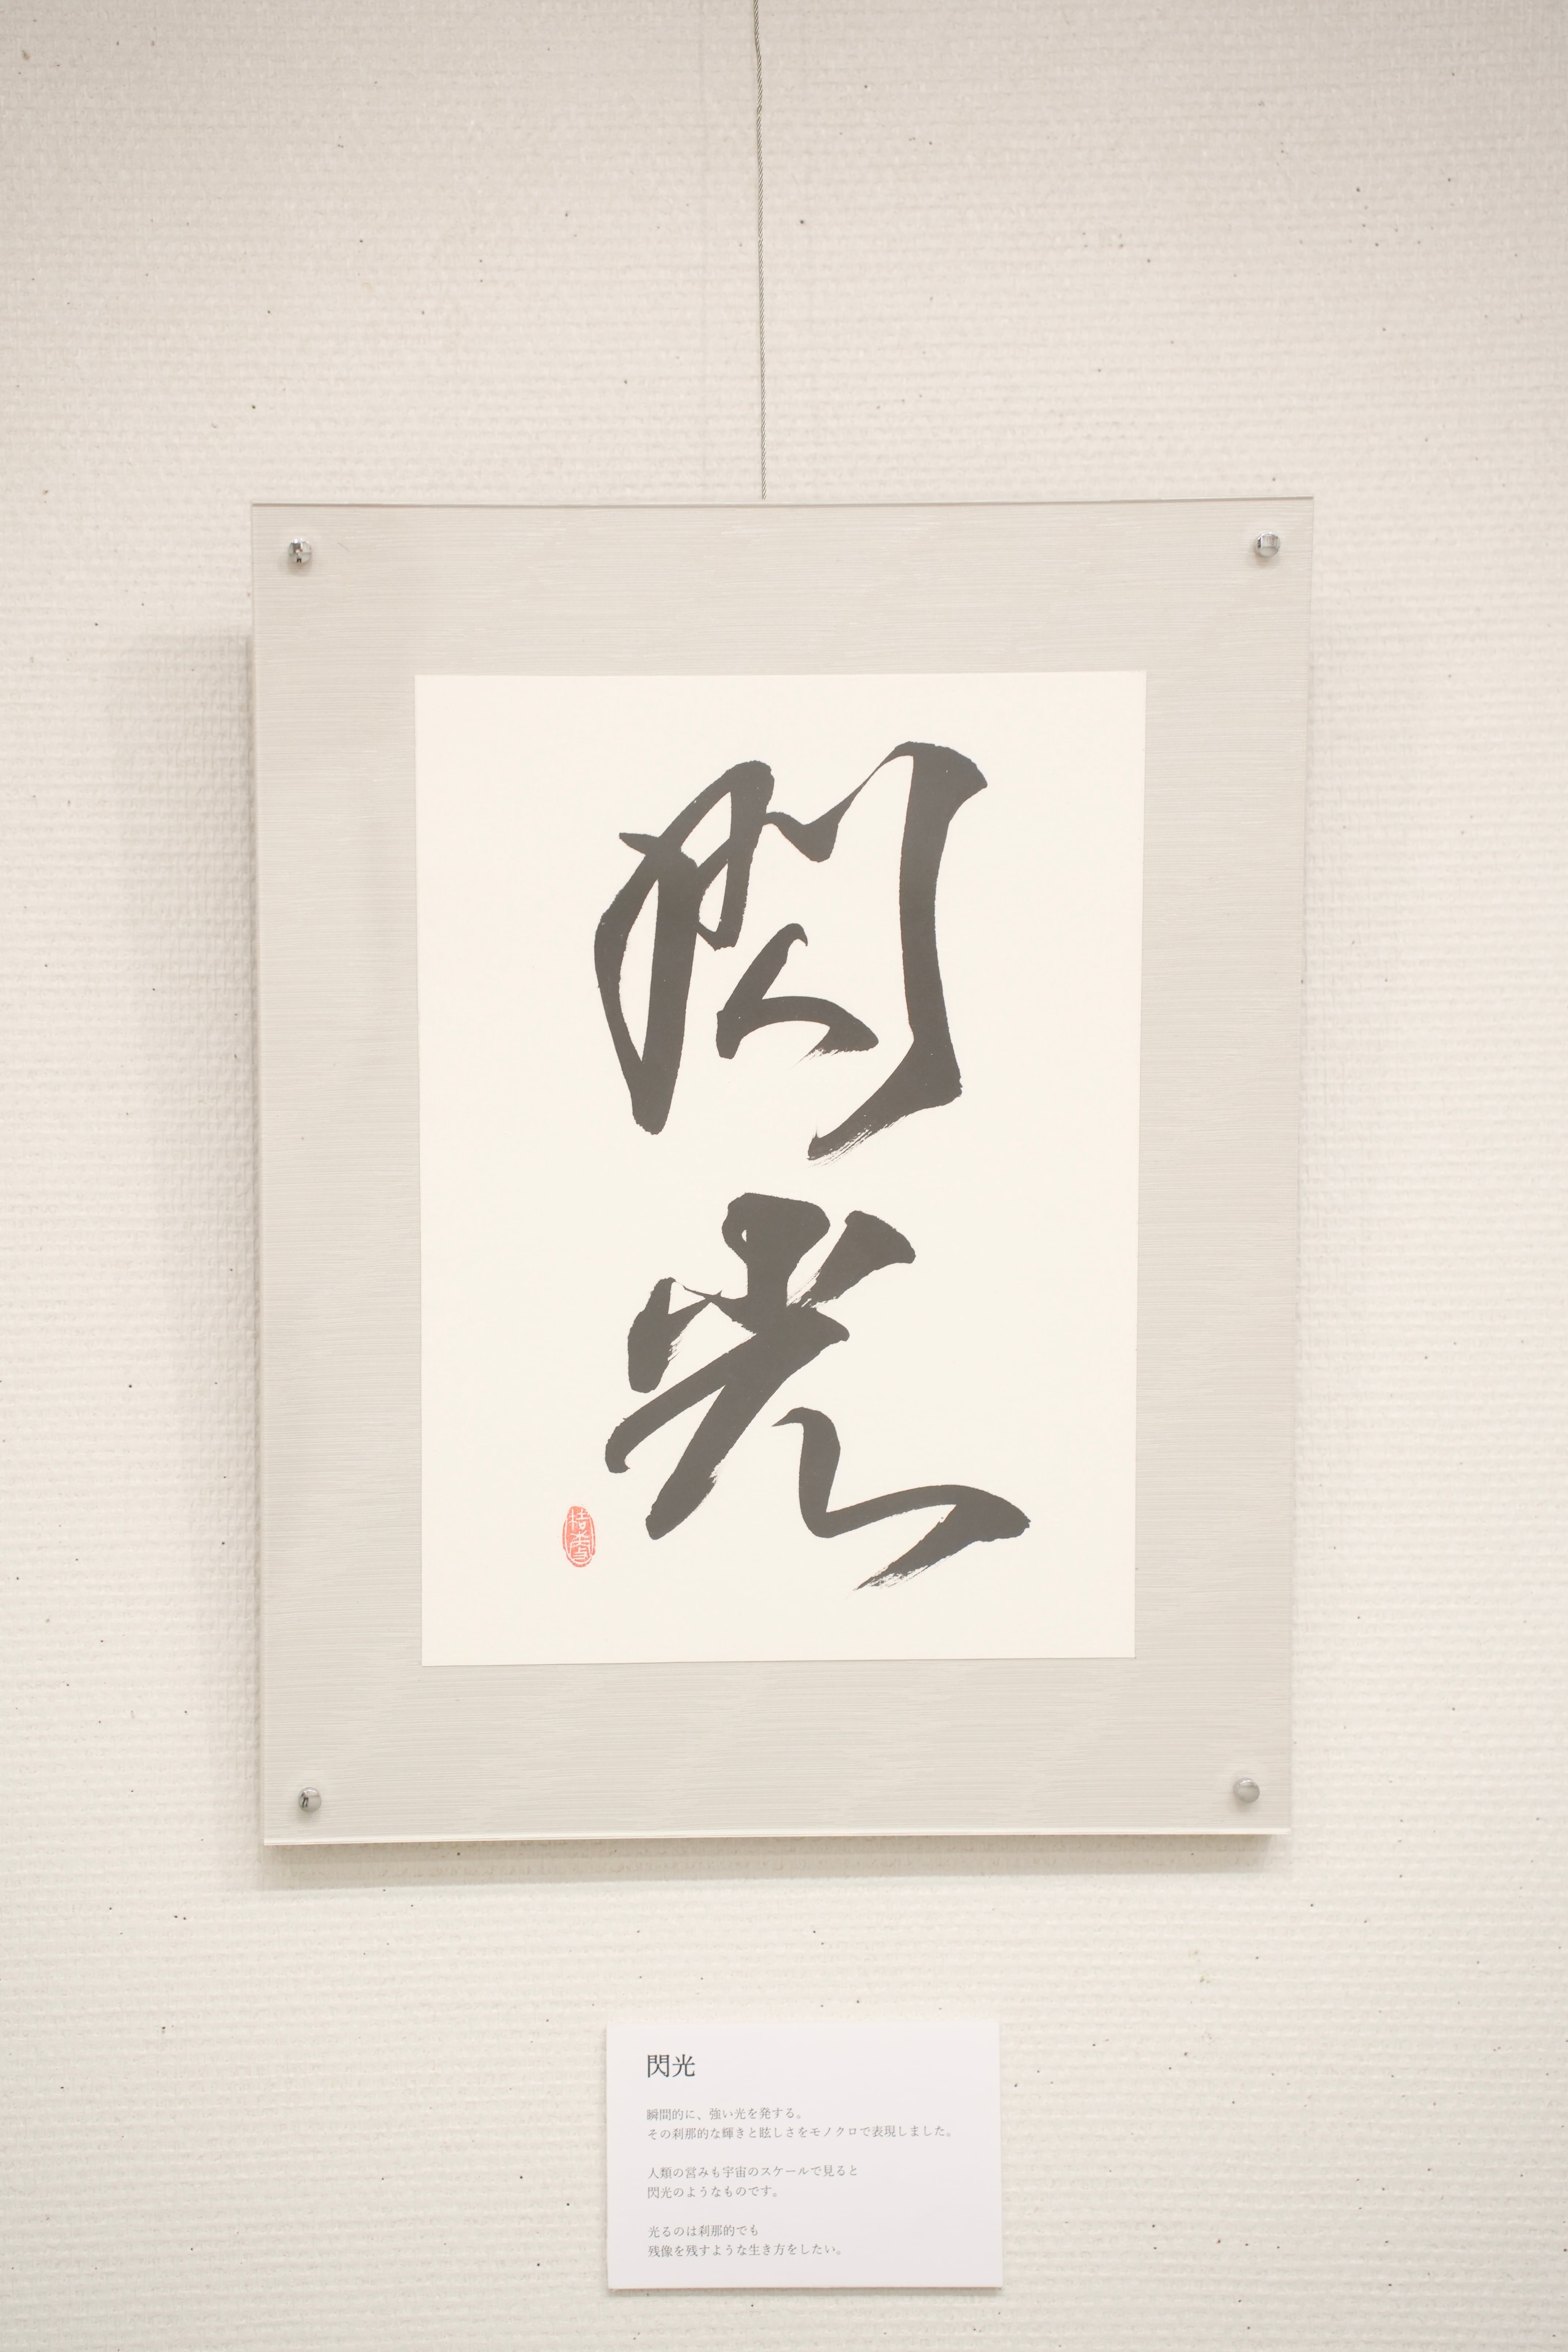 閃
光
閃光
瞬間的に、強い光を発する。
その刹那的な輝きと眩しさをモノクロで表現しました。
人類の営みも宇宙のスケールで見ると
閃光のようなものです。
光るのは刹那的でも
残像を残すような生き方をしたい。